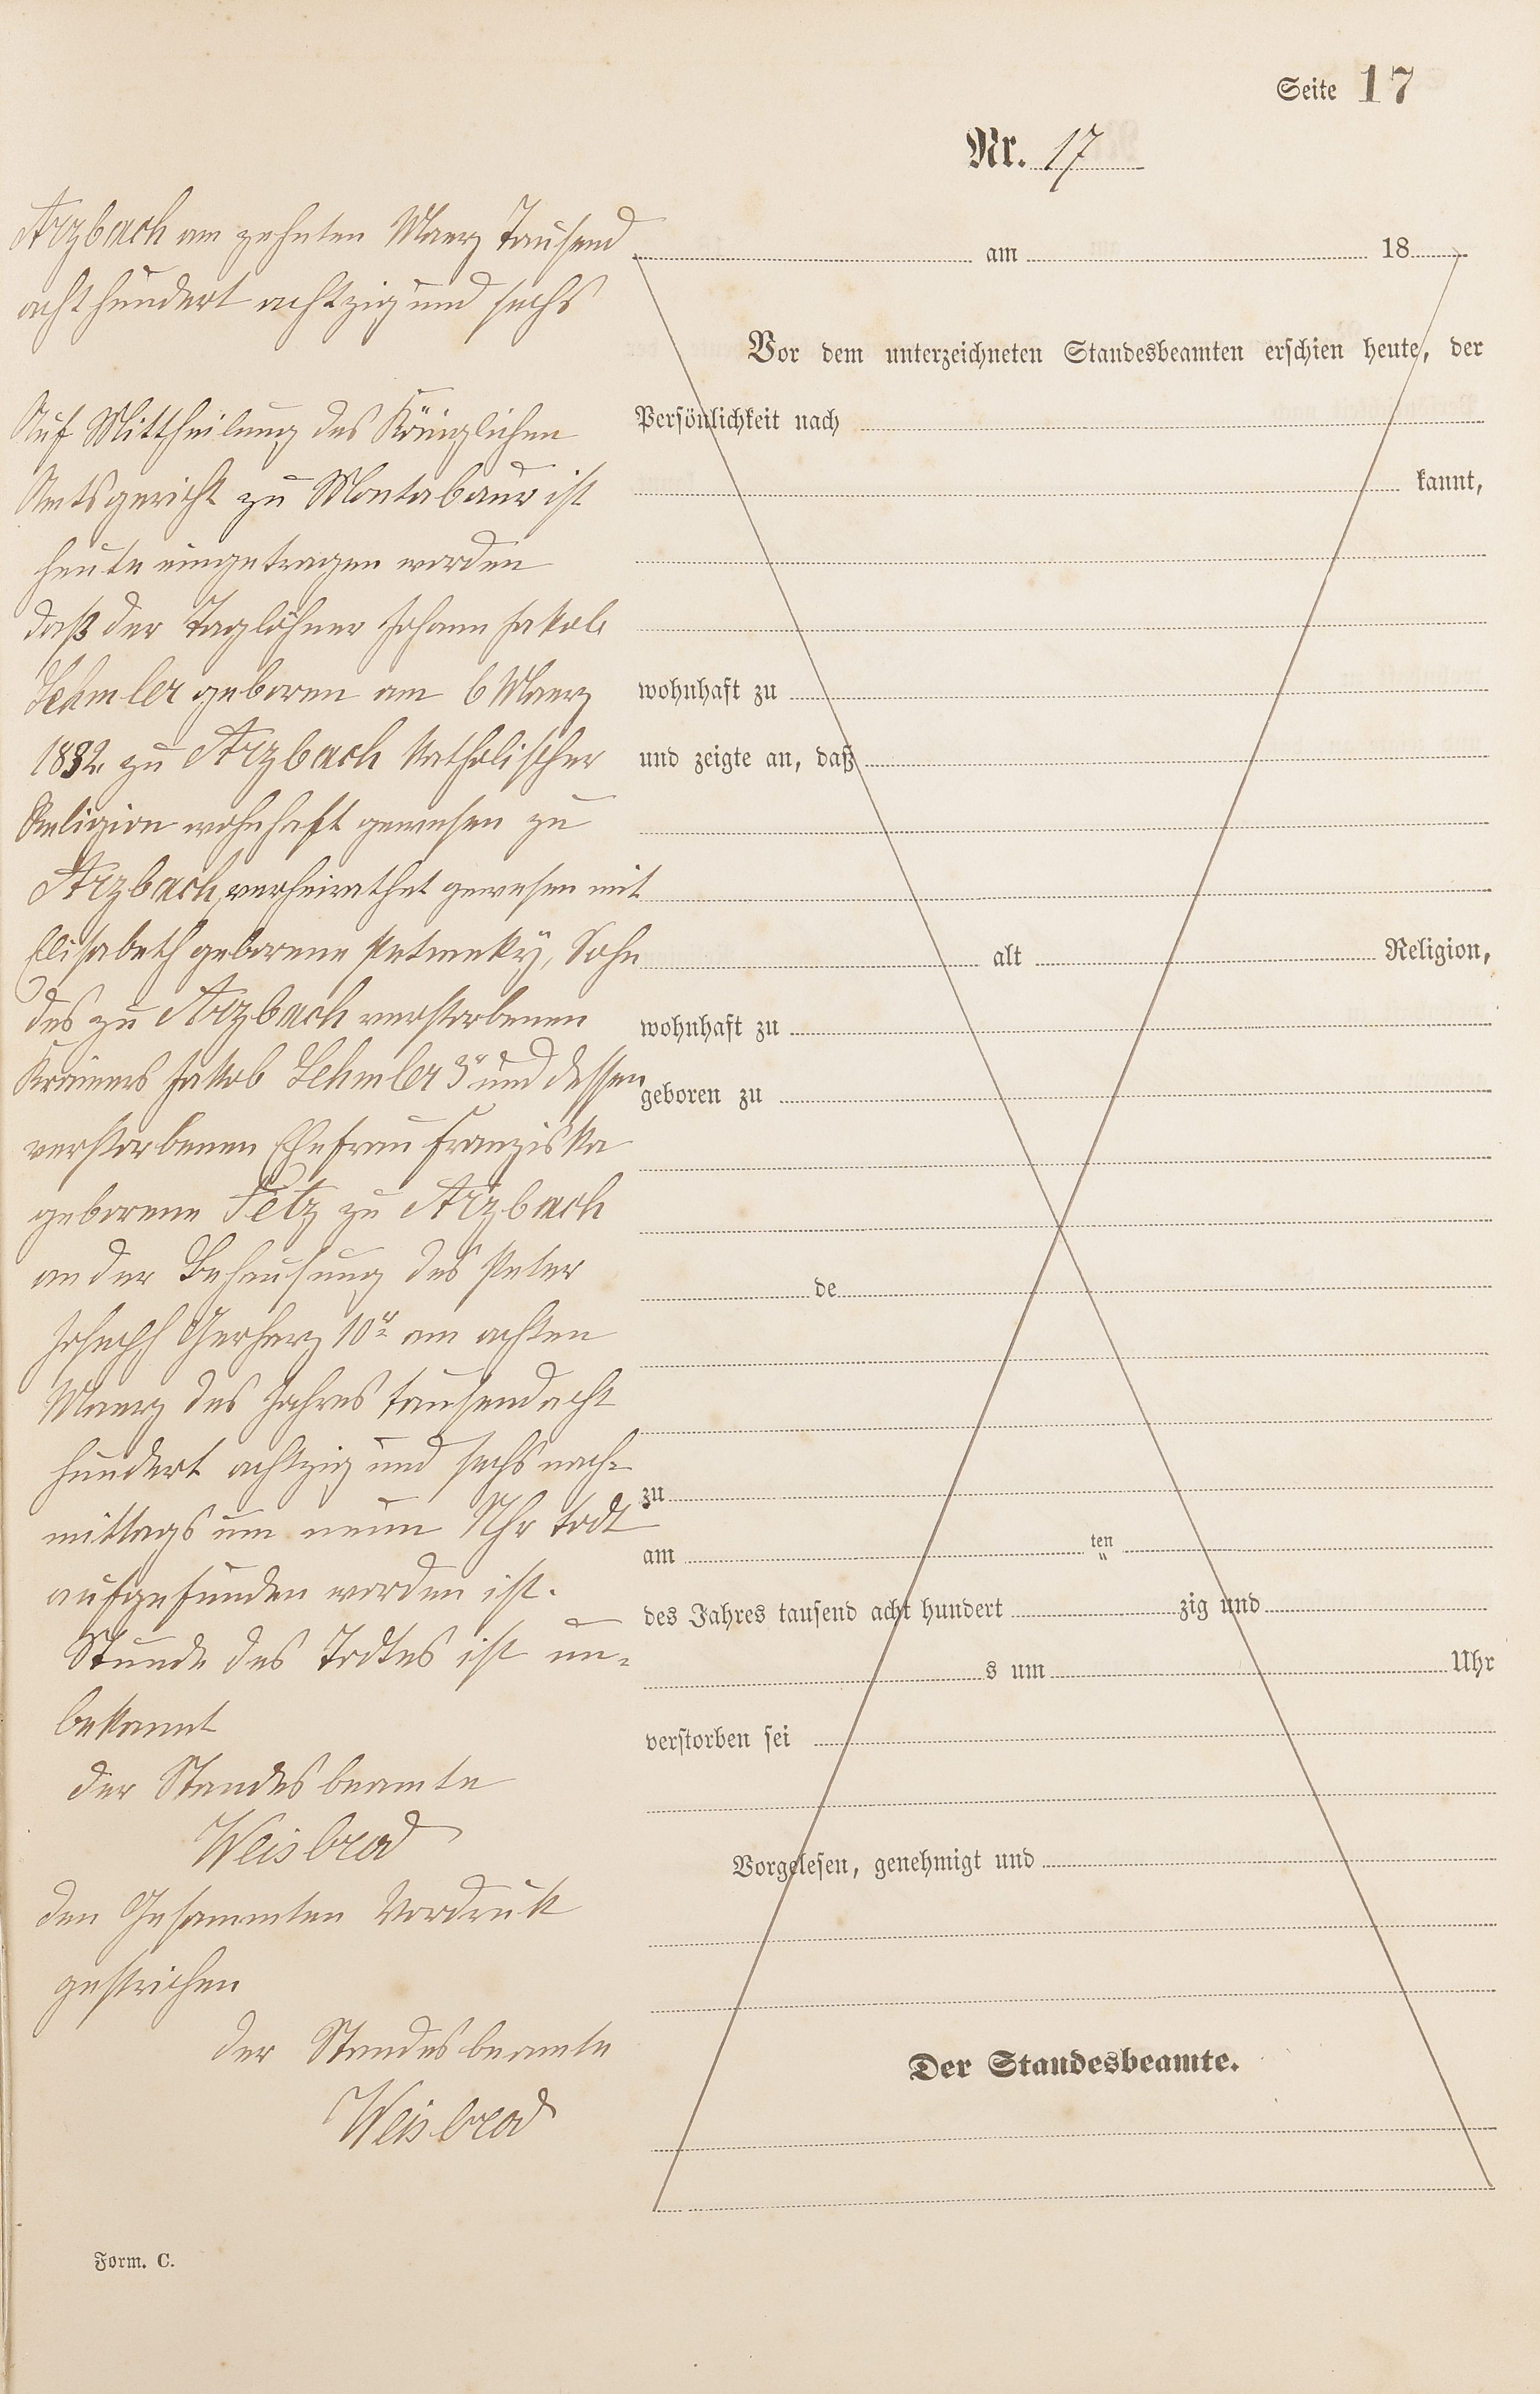 Seite 17
Nr. 17
Arzbach am zehnten Maerz Tausend
achthundert achtzig und sechs
Auf Mittheilung des Königlichen
Amtsgericht zu Montabaur ist
heute eingetragen worden
daß der Taglöhner Johann Jakob
Lehmler geboren am 6 Maerz
1832 zu Arzbach katholischer
Religion wohnhaft gewesen zu
Arzbach, verheirathet gewesen mit
Elisabeth geborene, Sohn
des zu Arzbach verstorbenen
Krämers Jakob Lehmler 3r und dessen
verstorbenen Ehefrau Franziska
geborene Fetz zu Arzbach
an der Behausung des Peter
Joseph Gerharz 10r am achten
Maerz des Jahres tausendacht
hundert achtzig und sechs nach=
mittags um neun Uhr todt
aufgefunden worden ist.
Stunde des Todtes ist un=
bekannt
der Standesbeamte
Weisbrod
den Gesammten Vordruk
gestrichen
der Standesbeamte
Weisbrod
am 18
Vor dem unterzeichneten Standesbeamten erschien heute, der
Persönlichkeit nach
kannt,
wohnhaft zu
und zeigte an, daß
alt Religion,
wohnhaft zu
geboren zu
de
zu
am ten
des Jahres tausend acht hundert zig und
s um Uhr
verstorben sei
Vorgelesen, genehmigt und
Der Standesbeamte.
Form. C.